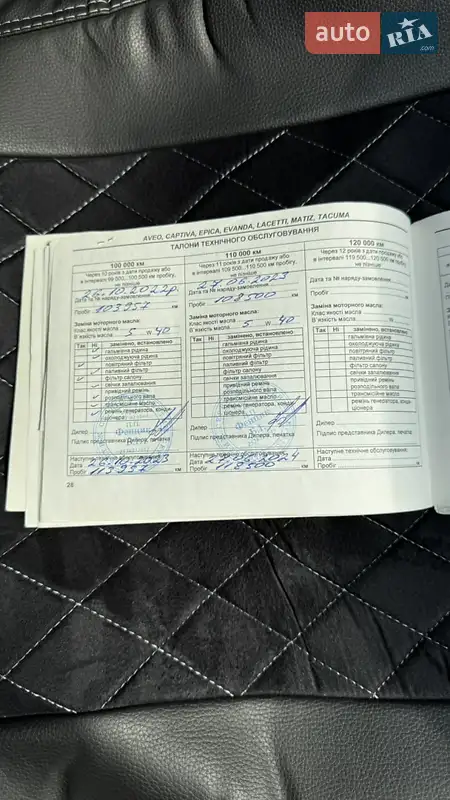 auto RIA .com
AVEO, CAPTIVA, EPICA, EVANDA, LACETTI, MATIZ, TACUMA
ТАЛОНИ ТЕХНІЧНОГО ОБСЛУГОВУВАННЯ
100 000 км
Через 10 років з дати продажу або
в інтервалі 99 500...100 500 км пробігу,
не пізніше
10.2022р
Дата та № наряду-замовлення
Пробіг 103957 км
Заміна моторного масла:
Клас якості масла
В'язкість масла 5 W 40
Так Ні замінено, встановлено
гальмівна рідина
охолоджуюча рідина
повітряний фільтр
паливний фільтр
фільтр салону
свічки запалювання
привідний ремінь
розподільчого вала
трансмісійне масло
ремінь генератора, конди-
ціонера
Дилер
Підпис представника Дилера, печатка
Наступне
Дата 2023
Пробіг 113957 км
26
110 000 км
Через 11 років з дати продажу або
в інтервалі 109 500...110 500 км пробігу,
не пізніше
27.06.2023
Дата та № наряду-замовлення
Пробіг 108500
Заміна моторного масла:
Клас якості масла
В'язкість масла 5 W 40
Так Ні замінено, встановлено
гальмівна рідина
охолоджуюча рідина
повітряний фільтр
паливний фільтр
фільтр салону
свічки запалювання
привідний ремінь
розподільчого вала
трансмісійне масло
ремінь генератора, конди-
ціонера
Дилер
Підпис представника Дилера, печатка
Наступне
Дата 2024
Пробіг 118500 км
120 000 км
Через 12 років з дати продажу або
в інтервалі 119 500...120 500 км пробігу,
не пізніше
Дата та № наряду-замовлення
Пробіг
Заміна моторного масла:
Клас якості масла
В'язкість масла W
Так Ні замінено, встановлено
гальмівна рідина
охолоджуюча рідина
повітряний фільтр
паливний фільтр
фільтр салону
свічки запалювання
привідний ремінь
розподільчого вала
трансмісійне масло
ремінь генератора, конди-
ціонера
Дилер
Підпис представника Дилера, печатка
Наступне технічне обслуговування:
Дата
Пробіг км